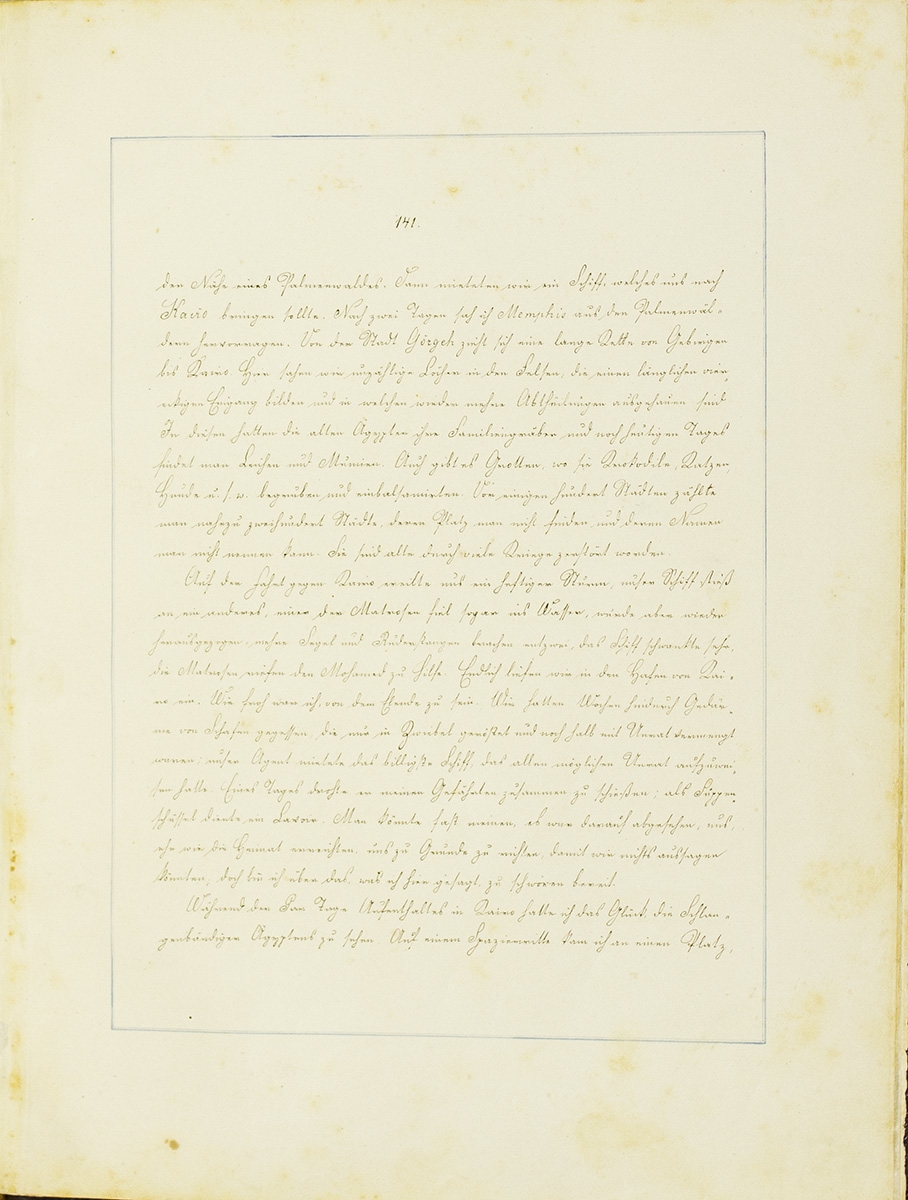 141.
der Nähe eines Palmenwaldes. Dann mieteten wir ein Schiff, welches uns nach
Kairo bringen sollte. Nach zwei Tagen sah ich Memphis aus den Palmenwäl-
dern hervorragen. Von der Stadt Görgeh zieht sich eine lange Kette von Gebirgen
bis Kairo. Hier sahen wir unzählige Löcher in den Felsen, die einen länglichen vier-
eckigen Eingang bilden und in welchen wieder mehre Abtheilungen ausgehauen sind
In diesen hatten die alten Ägypter ihre Familiengräber und noch heutigen Tages
findet man Leichen und Mumien. Auch gibt es Grotten, wo sie Krokodile, Katzen,
Hunde u. s. w. begruben und einbalsamirten. Von einigen hundert Städten zählte
man nahezu zweihundert Städte, deren Platz man nicht finden und deren Namen
man nicht nennen kann. Sie sind alle durch viele Kriege zerstört worden.
Auf der Fahrt gegen Kairo ereilte uns ein heftiger Sturm, unser Schiff stieß
an ein anderes, einer der Matrosen fiel sogar ins Wasser, wurde aber wieder
herausgezogen, mehre Segel und Ruderstangen brachen entzwei, das Schiff schwankte sehr,
die Matrosen riefen den Mohamed zu Hilfe. Endlich liefen wir in den Hafen von Kai-
ro ein. Wie froh war ich, von dem Elende zu sein. Wir hatten Wochen hindurch Gedär-
me von Schafen gegessen, die nur in Zwiebel geröstet und noch halb mit Unrat vermengt
waren; unser Agent mietete das billigste Schiff, das allen möglichen Unrat aufzuwei-
sen hatte. Eines Tages drohte er meinen Gefährten zusammen zu schießen; als Suppen-
schüssel diente ein Lavoir. Man könnte fast meinen, es war darauf abgesehen, uns,
ehe wir die Heimat erreichten, uns zu Grunde zu richten, damit wir nichts aussagen
könnten, doch bin ich über das, was ich hier gesagt, zu schwören bereit.
Während der Tage Aufenthaltes in Kairo hatte ich das Glück, die Schlan-
genbändiger Ägyptens zu sehen. Auf einem Spazierritte kam ich an einen Platz,